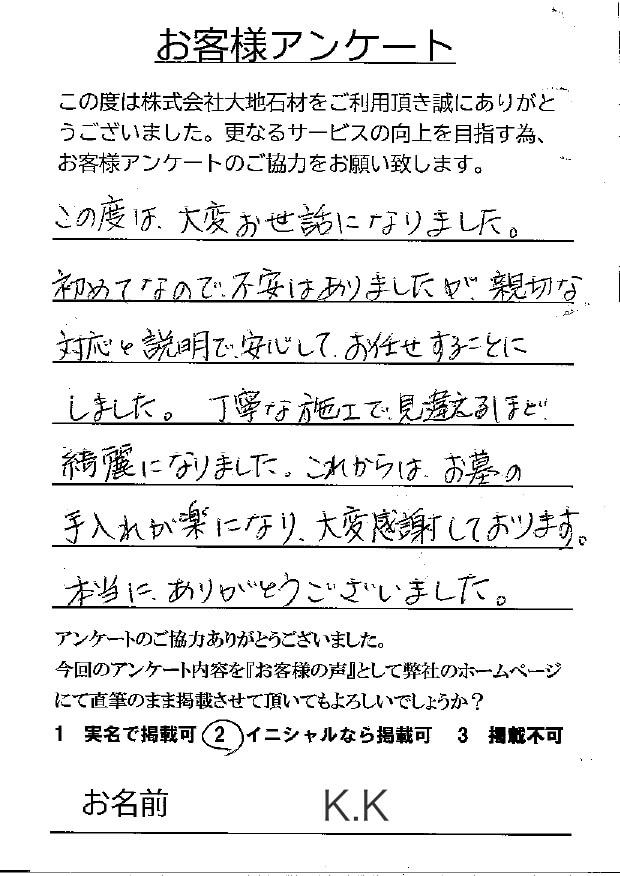 お客様アンケート
この度は株式会社大地石材をご利用頂き誠にありがと
うございました。更なるサービスの向上を目指す為、
お客様アンケートのご協力をお願い致します。
この度は、大変お世話になりました。
初めてなので、不安はありましたが、親切な
対応と説明で、安心して、お任せすることに
しました。 丁寧な施工で、見違えるほど、
綺麗になりました。これからは、お墓の
手入れが楽になり、大変感謝しております。
本当に、ありがとうございました。
アンケートのご協力ありがとうございました。
今回のアンケート内容を『お客様の声』として弊社のホームページ
にて直筆のまま掲載させて頂いてもよろしいでしょうか？
1 実名で掲載可 2 イニシャルなら掲載可 3 掲載不可
お名前 K.K